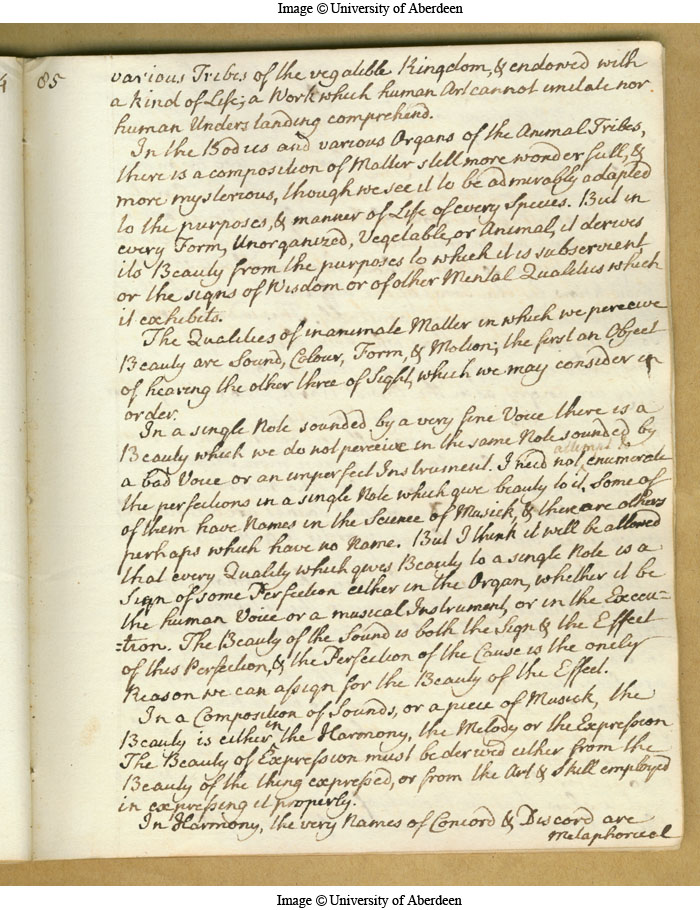 Image © University of Aberdeen
85
various Tribes of the vegatible Kingdom, & endowed with
a kind of Life; a Work which human Art cannot imitate nor
human Understanding comprehend.
In the Bodies and various Organs of the Animal Tribes,
there is a composition of Matter still more wonderfull, &
more mysterious, though we see it to be admirably adapted
to the purposes, & manner of Life of every Species. But in
every Form, Unorganized, Vegetable, or Animal, it derives
its Beauty from the purposes to which it is subservient
or the signs of Wisdom or of other Mental Qualities which
it exhibits.
The Qualities of inanimate Matter in which we perceive
Beauty are Sound, Colour, Form, & Motion; the first an Object
of hearing the other three of Sight, which we may consider in
order.
In a single Note sounded by a very fine Voice there is a
Beauty which we do not perceive in the same Note sounded by
attempt to
a bad Voice or an imperfect Instrument. I need not enumerate
the perfections in a single Note which give beauty to it. Some of
of them have Names in the Science of Musick, & there are others
perhaps which have no Name. But I think it will be allowed
that every Quality which gives Beauty to a single Note is a
Sign of some Perfection either in the Organ, whether it be
the human Voice or a musical Instrument, or in the Execu-
-tion. The Beauty of the Sound is both the Sign & the Effect
of this Perfection, & the Perfection of the Cause is the onely
Reason we can assign for the Beauty of the Effect.
In a Composition of Sounds, or a piece of Musick, the
Beauty is either in the Harmony, the Melody or the Expression
The Beauty of Expression must be derived either from the
Beauty of the thing expressed, or from the Art & Skill employed
in expressing it properly.
In Harmony, the very Names of Concord & Discord are
metaphorical
Image © University of Aberdeen